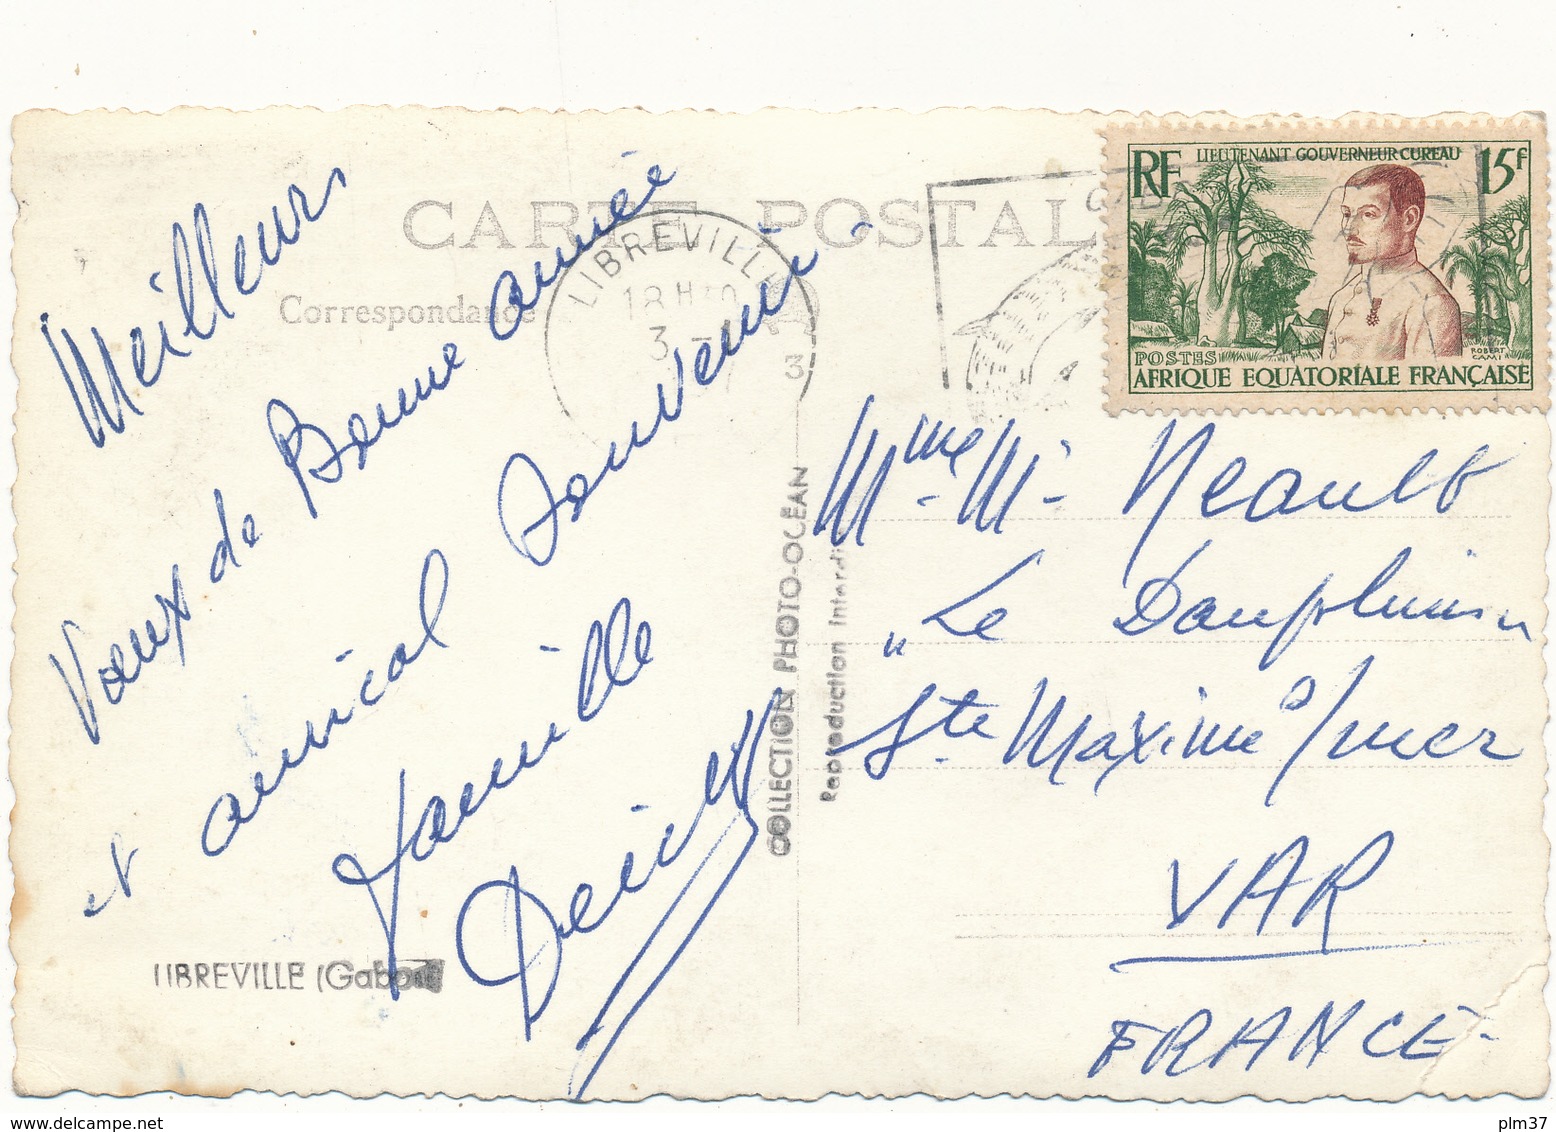 CARTE POSTALE
Correspondance
LIBREVILLE
18H
3 -
3
RF
LIEUTENANT GOUVERNEUR CUREAU
15F
ROBERT
CAMI
POSTES
AFRIQUE EQUATORIALE FRANÇAISE
Meilleurs
Vœux de Bonne année
et amical souvenir.
Famille
LIBREVILLE (Gabon)
COLLECTION PHOTO-OCÉAN
Reproduction Interdi
Mme M.
"Le
Ste Maxime s/mer
VAR
FRANCE.
www.delcampe.net
plm37